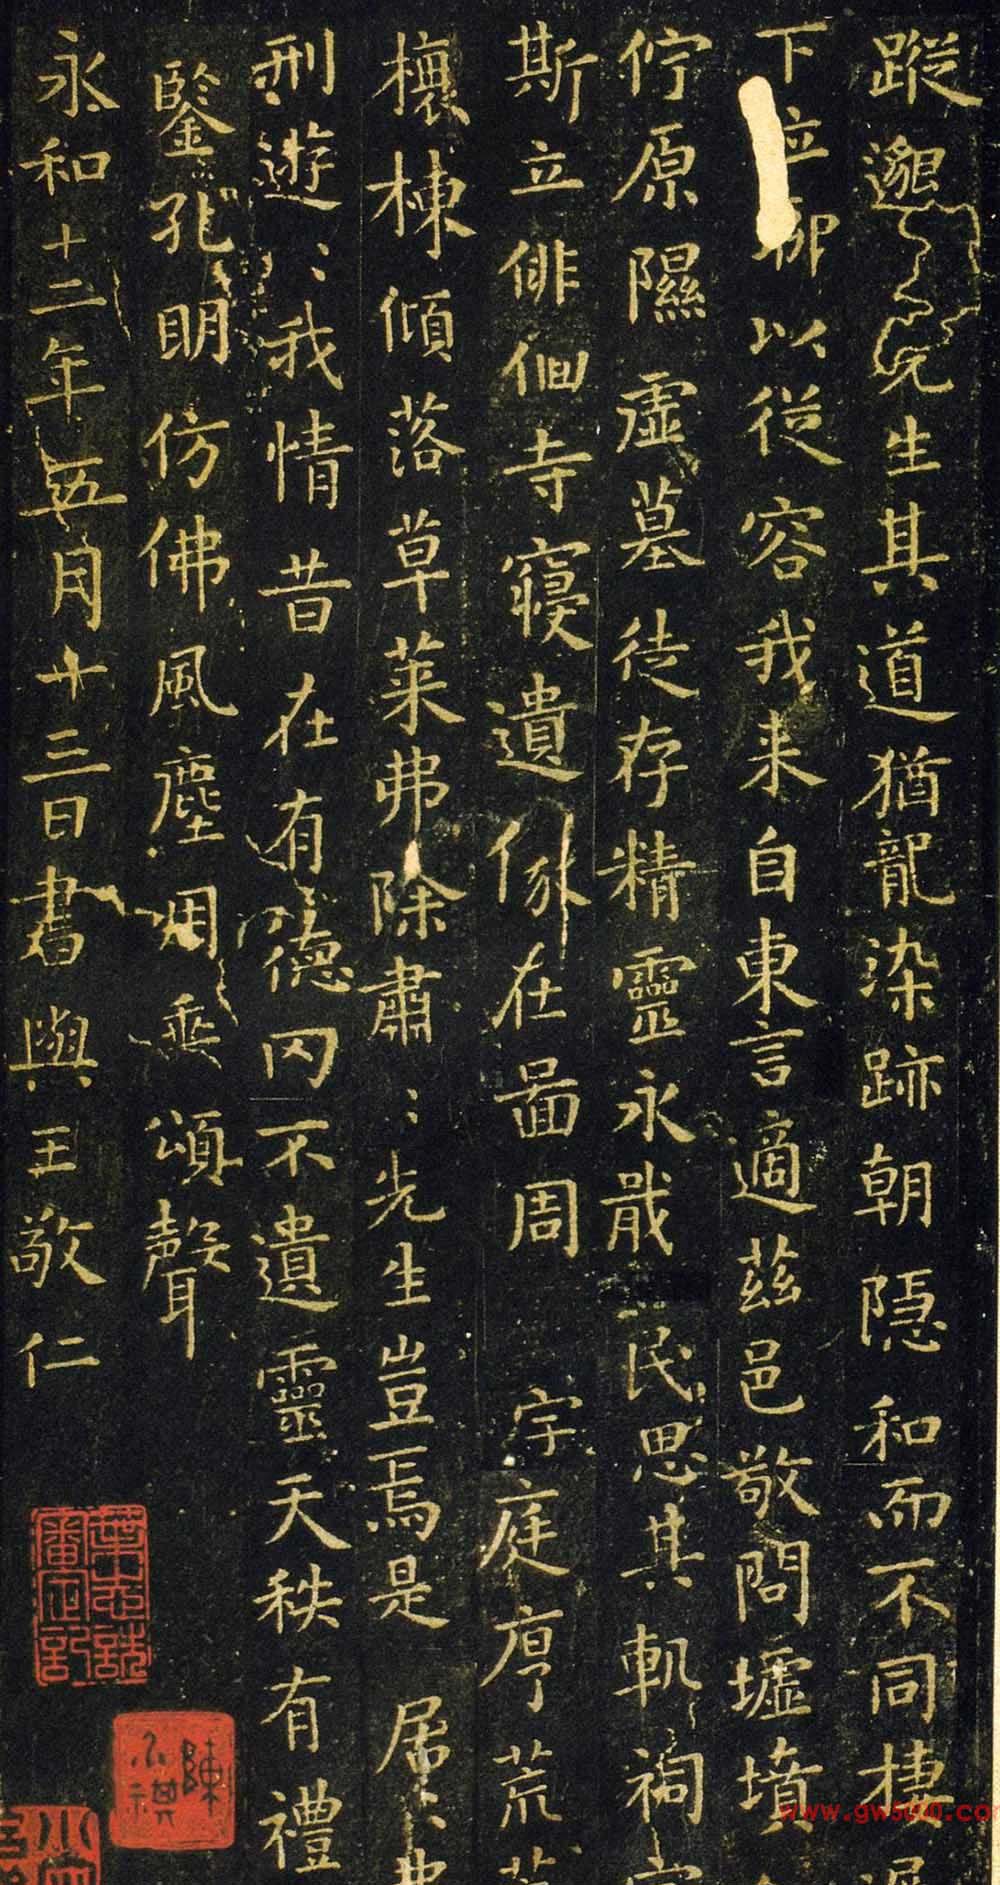 蹤邈先生其道猶龍染跡朝隱和而不同棲
下以從容我来自東言適茲邑敬問墟墳
佇原隰虛墓徒存精靈永戢民思其軌祠
斯立徘徊寺寝遺像在啚周宇庭序荒
榱棟傾落草萊弗除肅〻先生豈焉是居
刑遊〻我情昔在有德罔不遺靈天秩有禮
鑒孔明仿佛風塵用垂頌聲
永和十二年五月十三日書與王敬仁
www.gw5000.co